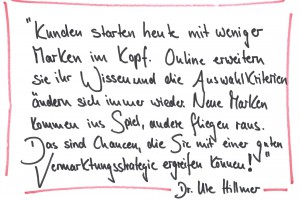 "Kunden starten heute mit weniger
Marken im Kopf. Online erweitern
sie ihr Wissen und die Auswahlkriterien
ändern sich immer wieder. Neue Marken
kommen ins Spiel, andere fliegen raus.
Das sind Chancen, die Sie mit einer guten
Vermarktungsstrategie ergreifen können!"
Dr. Ute Hillmer